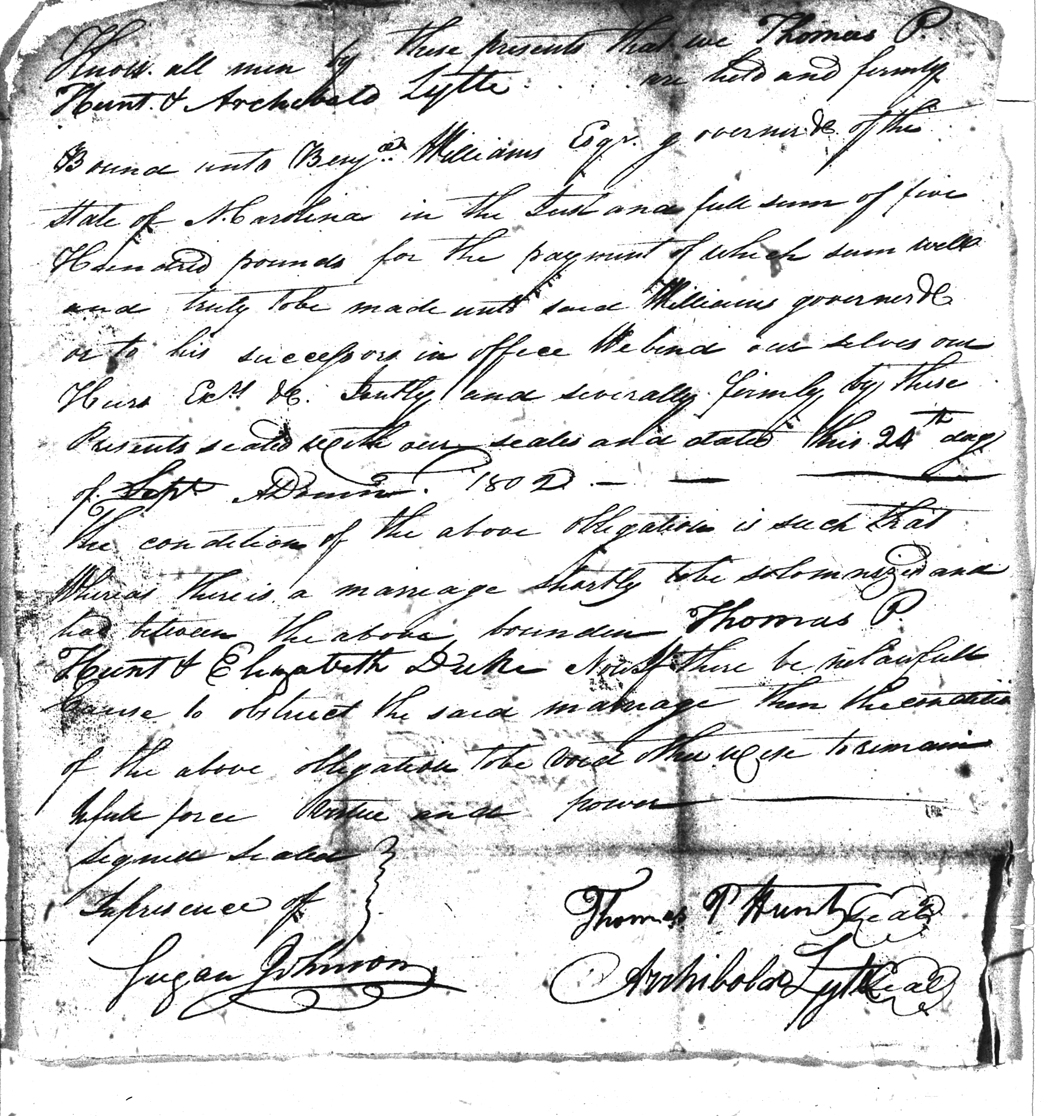 Know all men by these presents that we Thomas P.
Hunt & Archebald Lytle are held and firmly
Bound unto Benjan. Williams Esqr. governer &c of the
State of N. Carolina in the Just and full sum of five
Hundred pounds for the payment of which sum well
and truly tobe made unto said Williams governer &c
or to his successors in office We bind our selves our
Heirs Exrs &c. Jointly and severally firmly by these
Presents sealed with our seales and dated this 24th day
of Sept ADomin. 1802
The condition of the above obligation is such that
Whereas there is a marreage shortly tobe solomnized and
had between the above bounden Thomas P.
Hunt & Elizabeth Duke Now If there be no lawfull
Cause to obstruct the said marreage then the condition
of the above obligation tobe void otherwise to remain
In full force Virtue and power
signed sealed
In presence of
Thomas P Hunt seal
Johnson Archibald Lytle seal